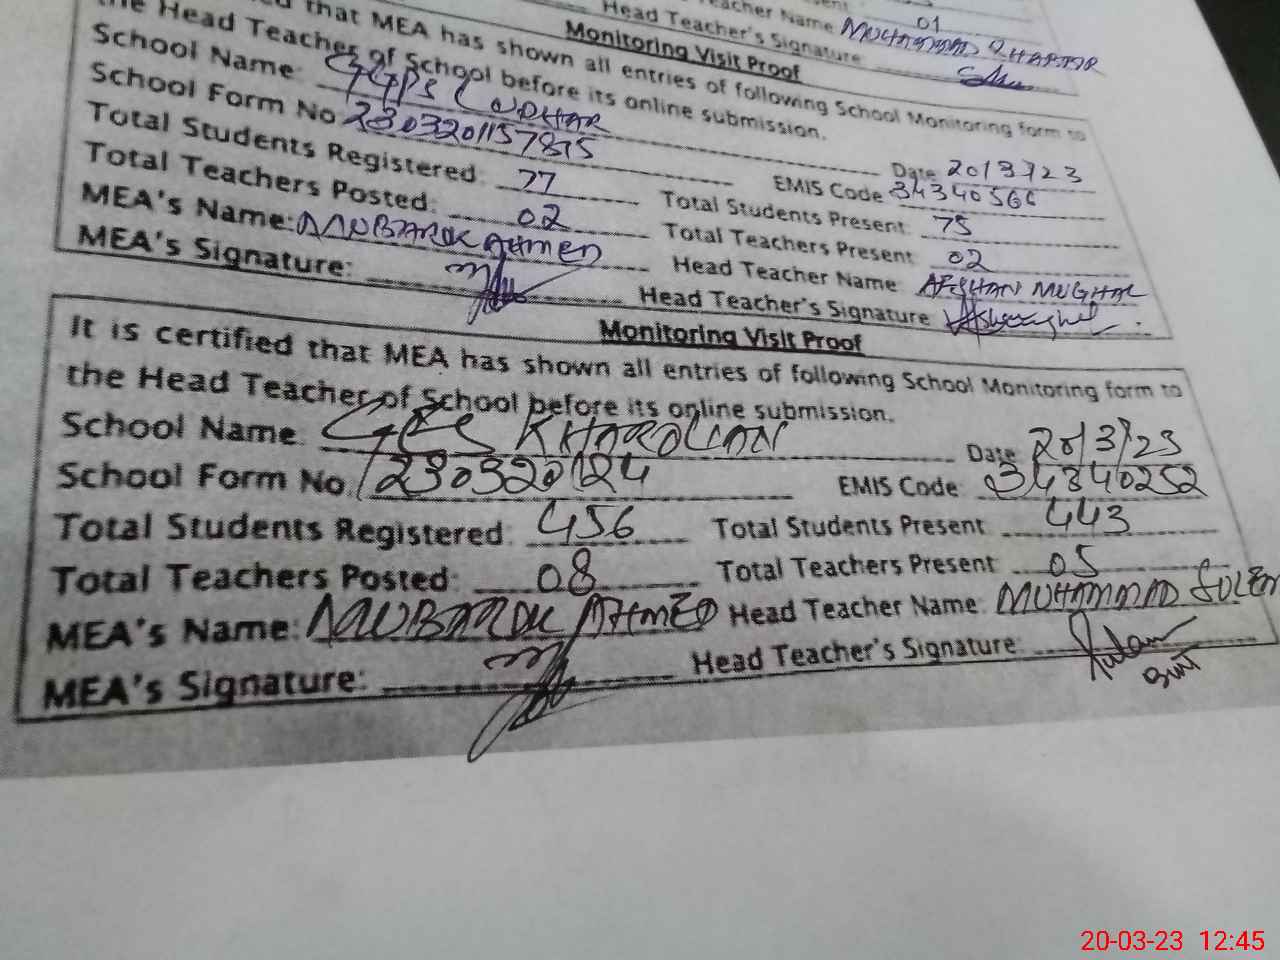 01
Teacher Name MUHAMMAD
Head Teacher's Signature
Monitoring Visit Proof
that MEA has shown all entries of following School Monitoring form to
the Head Teacher of School before its online submission.
School Name: GGPS Date 20/3/23
School Form No 2303201157815 EMIS Code 34340566
Total Students Registered: 77 Total Students Present 75
Total Teachers Posted: 02 Total Teachers Present 02
MEA's Name: MUBARAK AHMED Head Teacher Name AFSHAN MUGHAL
MEA's Signature: Head Teacher's Signature
Monitoring Visit Proof
It is certified that MEA has shown all entries of following School Monitoring form to
the Head Teacher of School before its online submission.
School Name. GES KHAROLIAN Date 20/3/23
School Form No. 230320124 EMIS Code 34340252
Total Students Registered 456 Total Students Present 443
Total Teachers Posted: 08 Total Teachers Present 05
MEA's Name: MUBARAK AHMED Head Teacher Name MUHAMMAD
MEA's Signature: Head Teacher's Signature: Butt
20-03-23 12:45